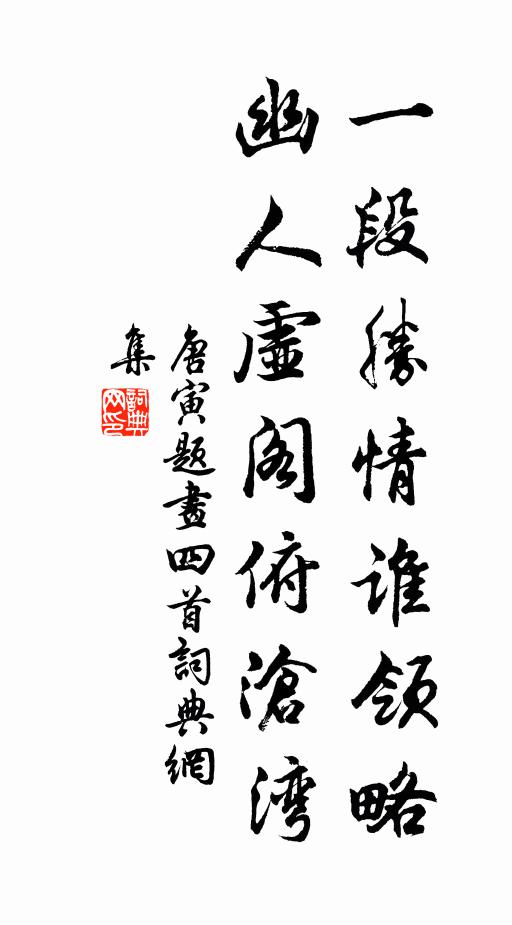 一段勝情誰領略
幽人虛阁俯滄湾
唐寅题畫四首詞典網
集
詞典
网印